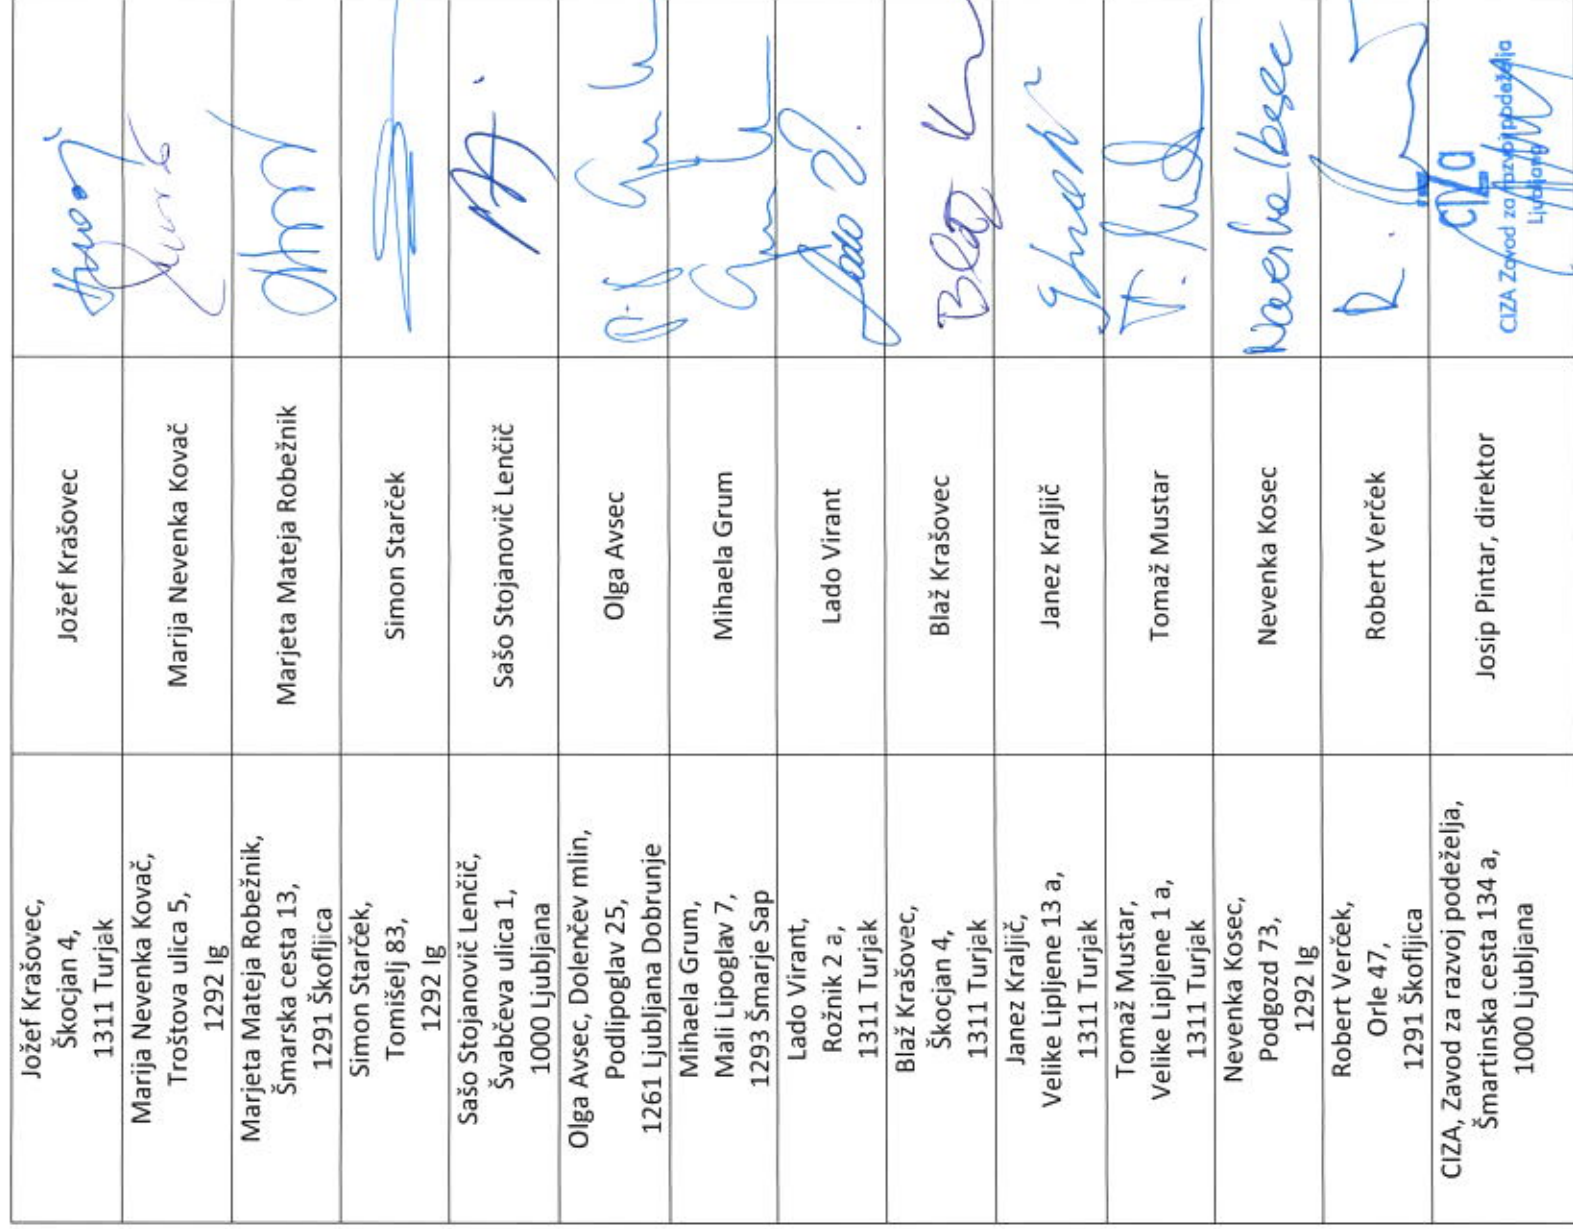 Jožef Krašovec,
Škocjan 4,
1311 Turjak
Jožef Krašovec
Marija Nevenka Kovač,
Troštova ulica 5,
1292 Ig
Marija Nevenka Kovač
Marjeta Mateja Robežnik,
Šmarska cesta 13,
1291 Škofljica
Marjeta Mateja Robežnik
Simon Starček,
Tomišelj 83,
1292 Ig
Simon Starček
Sašo Stojanovič Lenčič,
Švabčeva ulica 1,
1000 Ljubljana
Sašo Stojanovič Lenčič
Olga Avsec, Dolenčev mlin,
Podlipoglav 25,
1261 Ljubljana Dobrunje
Olga Avsec
Mihaela Grum,
Mali Lipoglav 7,
1293 Šmarje Sap
Mihaela Grum
Lado Virant,
Rožnik 2 a,
1311 Turjak
Lado Virant
Lado V.
Blaž Krašovec,
Škocjan 4,
1311 Turjak
Blaž Krašovec
Blaž K
Janez Kraljič,
Velike Lipljene 13 a,
1311 Turjak
Janez Kraljič
Tomaž Mustar,
Velike Lipljene 1 a,
1311 Turjak
Tomaž Mustar
Nevenka Kosec,
Podgozd 73,
1292 Ig
Nevenka Kosec
Robert Verček,
Orle 47,
1291 Škofljica
Robert Verček
CIZA, Zavod za razvoj podeželja,
Šmartinska cesta 134 a,
1000 Ljubljana
Josip Pintar, direktor
ciza
CIZA Zavod za razvoj podeželja
Ljubljana